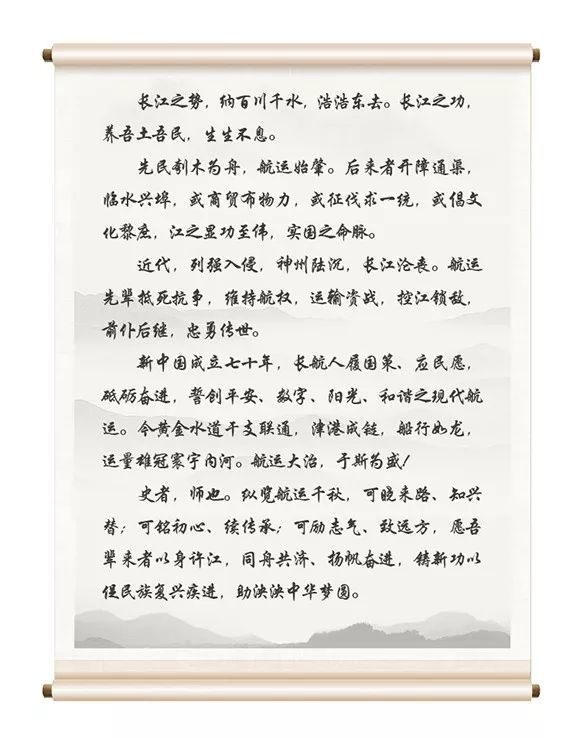 长江之势，纳百川千水，浩浩东去。长江之功，
养吾土吾民，生生不息。
先民刳木为舟，航运始肇。后来者开障通渠，
临水兴埠，或商贸布物力，或征伐求一统，或倡文
化黎庶，江之显功至伟，实国之命脉。
近代，列强入侵，神州陆沉，长江沦丧。航运
先辈抵死抗争，维持航权，运输资战，控江锁敌，
前仆后继，忠勇传世。
新中国成立七十年，长航人履国策、应民愿，
砥砺奋进，誓创平安、数字、阳光、和谐之现代航
运。今黄金水道干支联通，津港成链，船行如龙，
运量雄冠寰宇内河。航运大治，于斯为盛！
史者，师也。纵览航运千秋，可晓来路、知兴
替；可铭初心、续传承；可励志气、致远方，愿吾
辈来者以身许江，同舟共济、扬帆奋进，铸新功以
促民族复兴疾进，助泱泱中华梦圆。